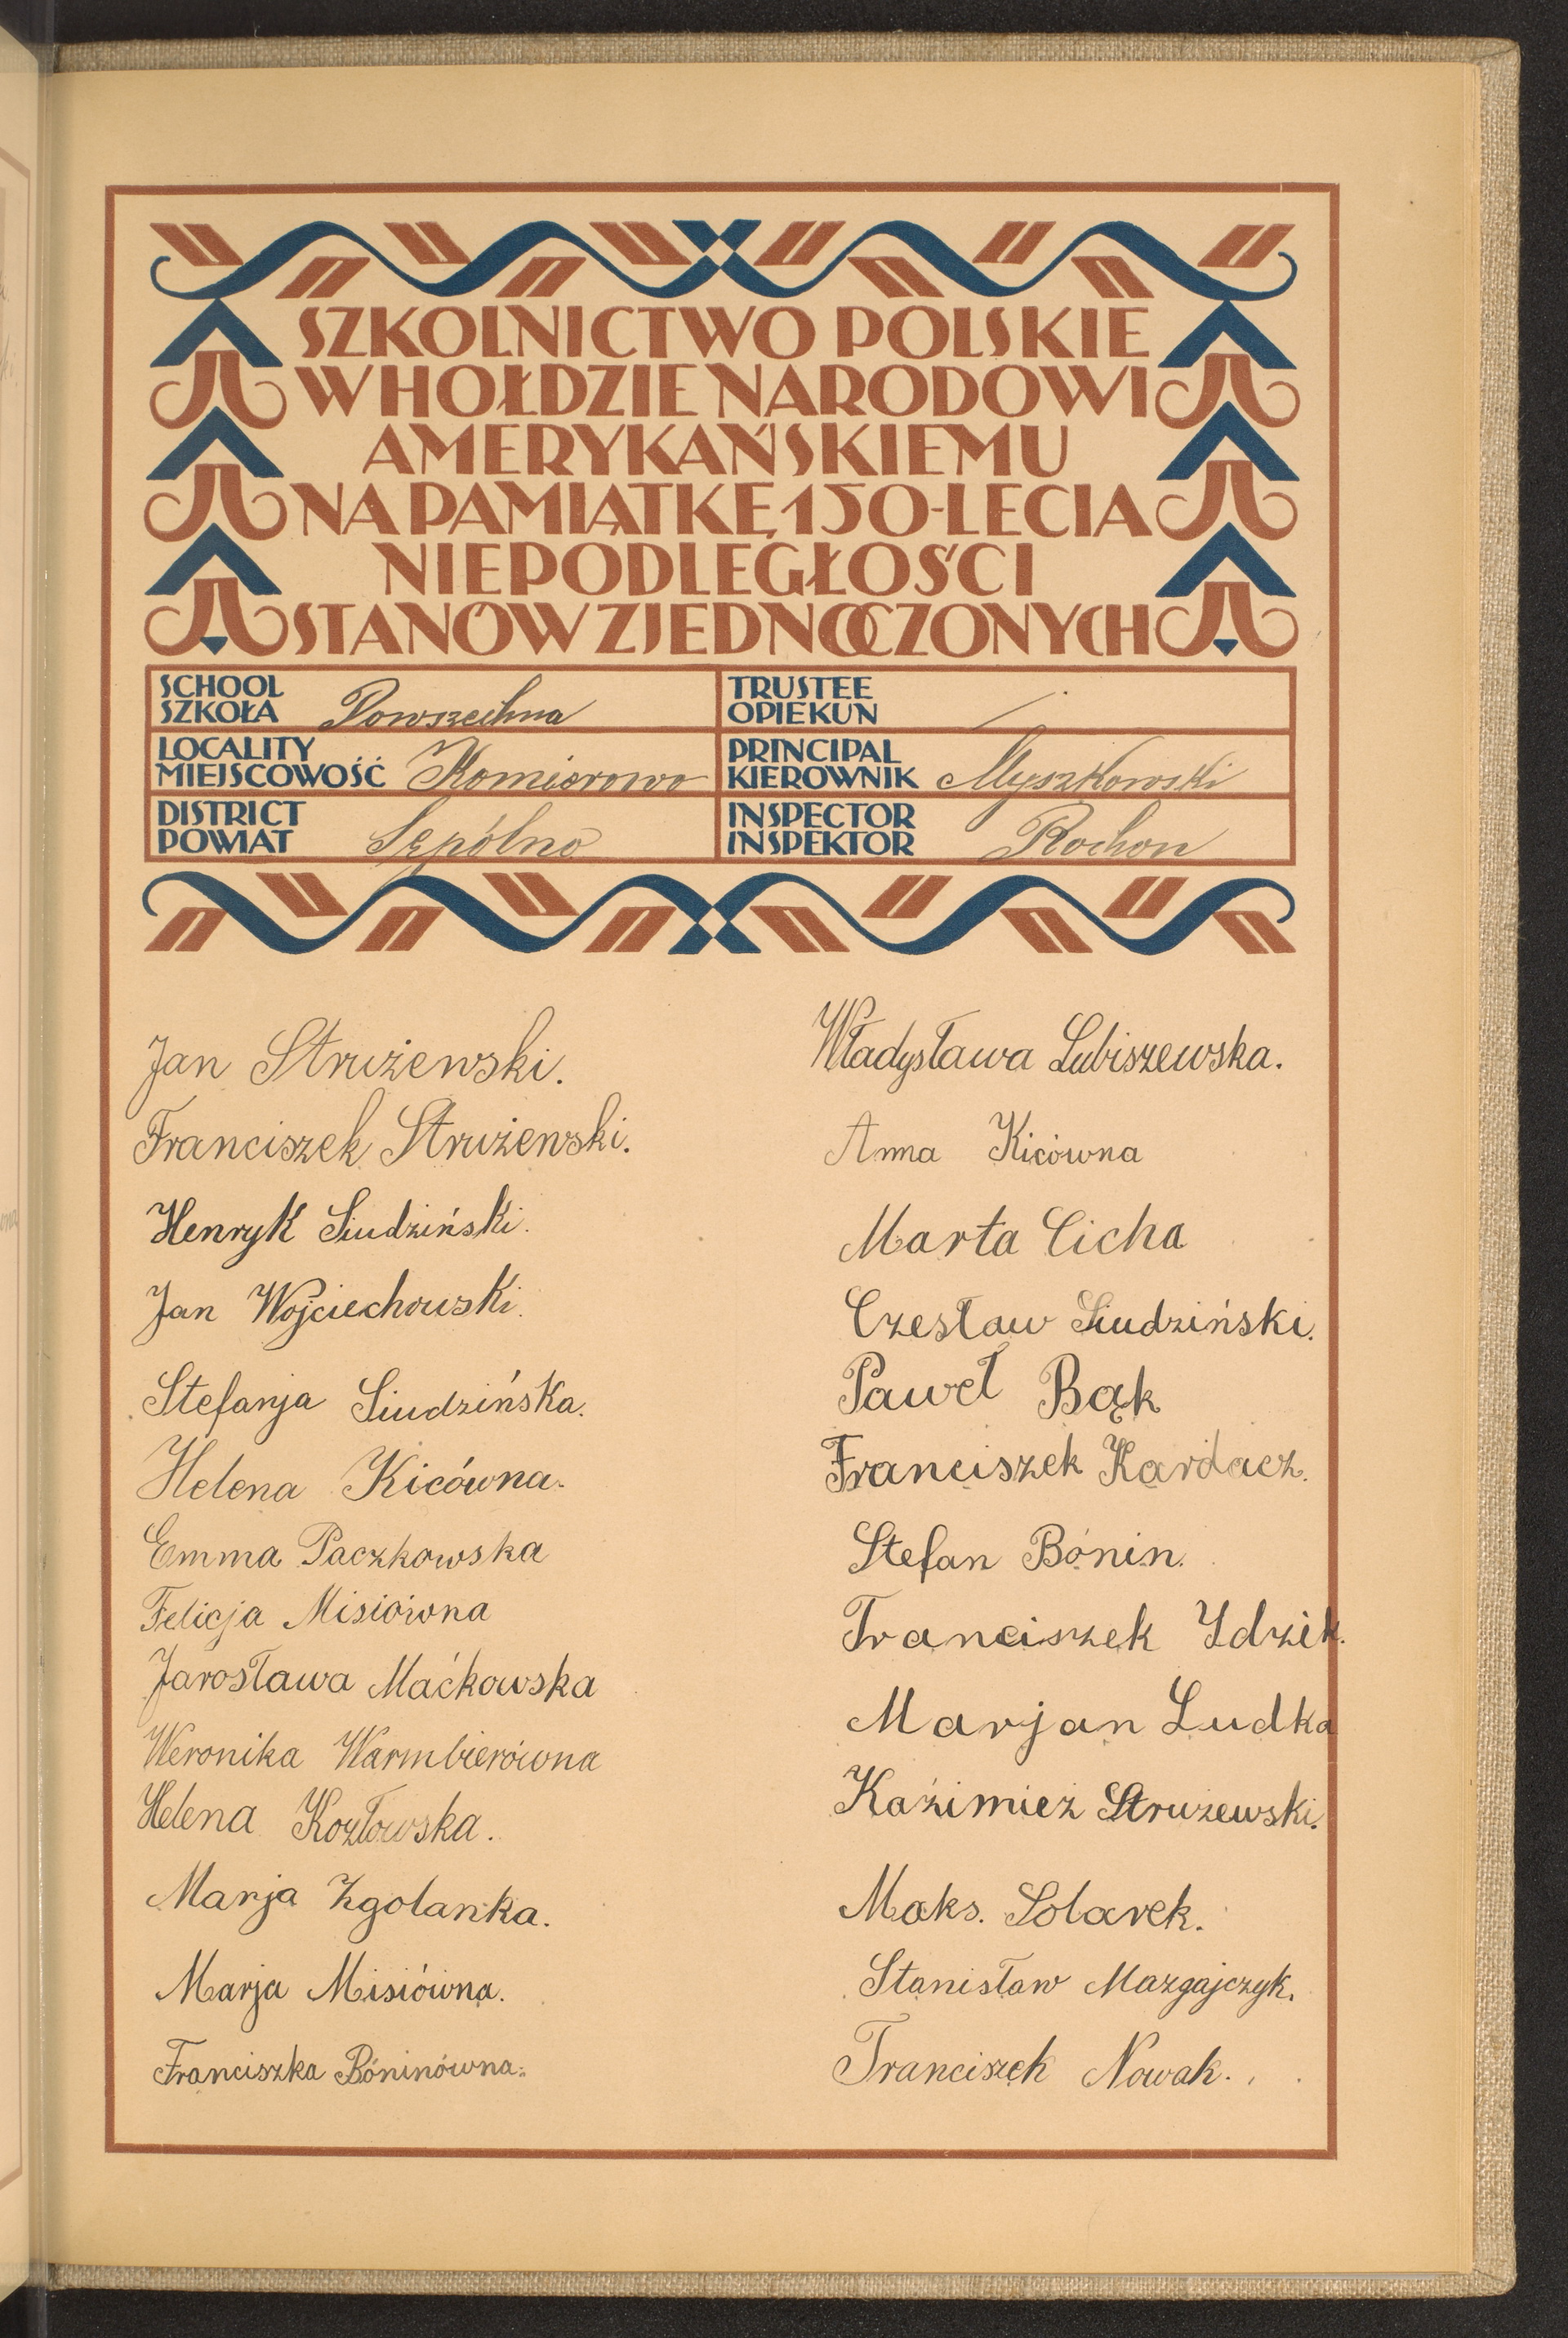 SZKOLNICTWO POLSKIE
W HOŁDZIE NARODOWI
AMERYKAŃSKIEMU
NA PAMIĄTKĘ 150-LECIA
NIEPODLEGŁOŚCI
STANÓW ZJEDNOCZONYCH
SCHOOL
SZKOŁA Powszechna
TRUSTEE
OPIEKUN
LOCALITY
MIEJSCOWOŚĆ Komierowo
PRINCIPAL
KIEROWNIK Myszkowski
DISTRICT
POWIAT Sępólno
INSPECTOR
INSPEKTOR Rochon
Jan Strużewski.
Franciszek Strużewski.
Henryk Siudziński.
Jan Wojciechowski.
Stefanja Siudzińska.
Helena Kicówna.
Emma Paczkowska
Felicja Misiówna
Jarosława Maćkowska
Weronika Warmbierówna
Helena Kozłowska.
Marja Zgolanka.
Marja Misiówna.
Franciszka Bóninówna.
Władysława Lubiszewska.
Anna Kicówna
Marta Cicha
Czesław Siudziński.
Paweł Bąk
Franciszek Kardacz.
Stefan Bónin.
Franciszek Idzik.
Marjan Ludka
Kaźimież Strużewski.
Maks. Solarek.
Stanisław Mazgajczyk.
Franciszek Nowak.